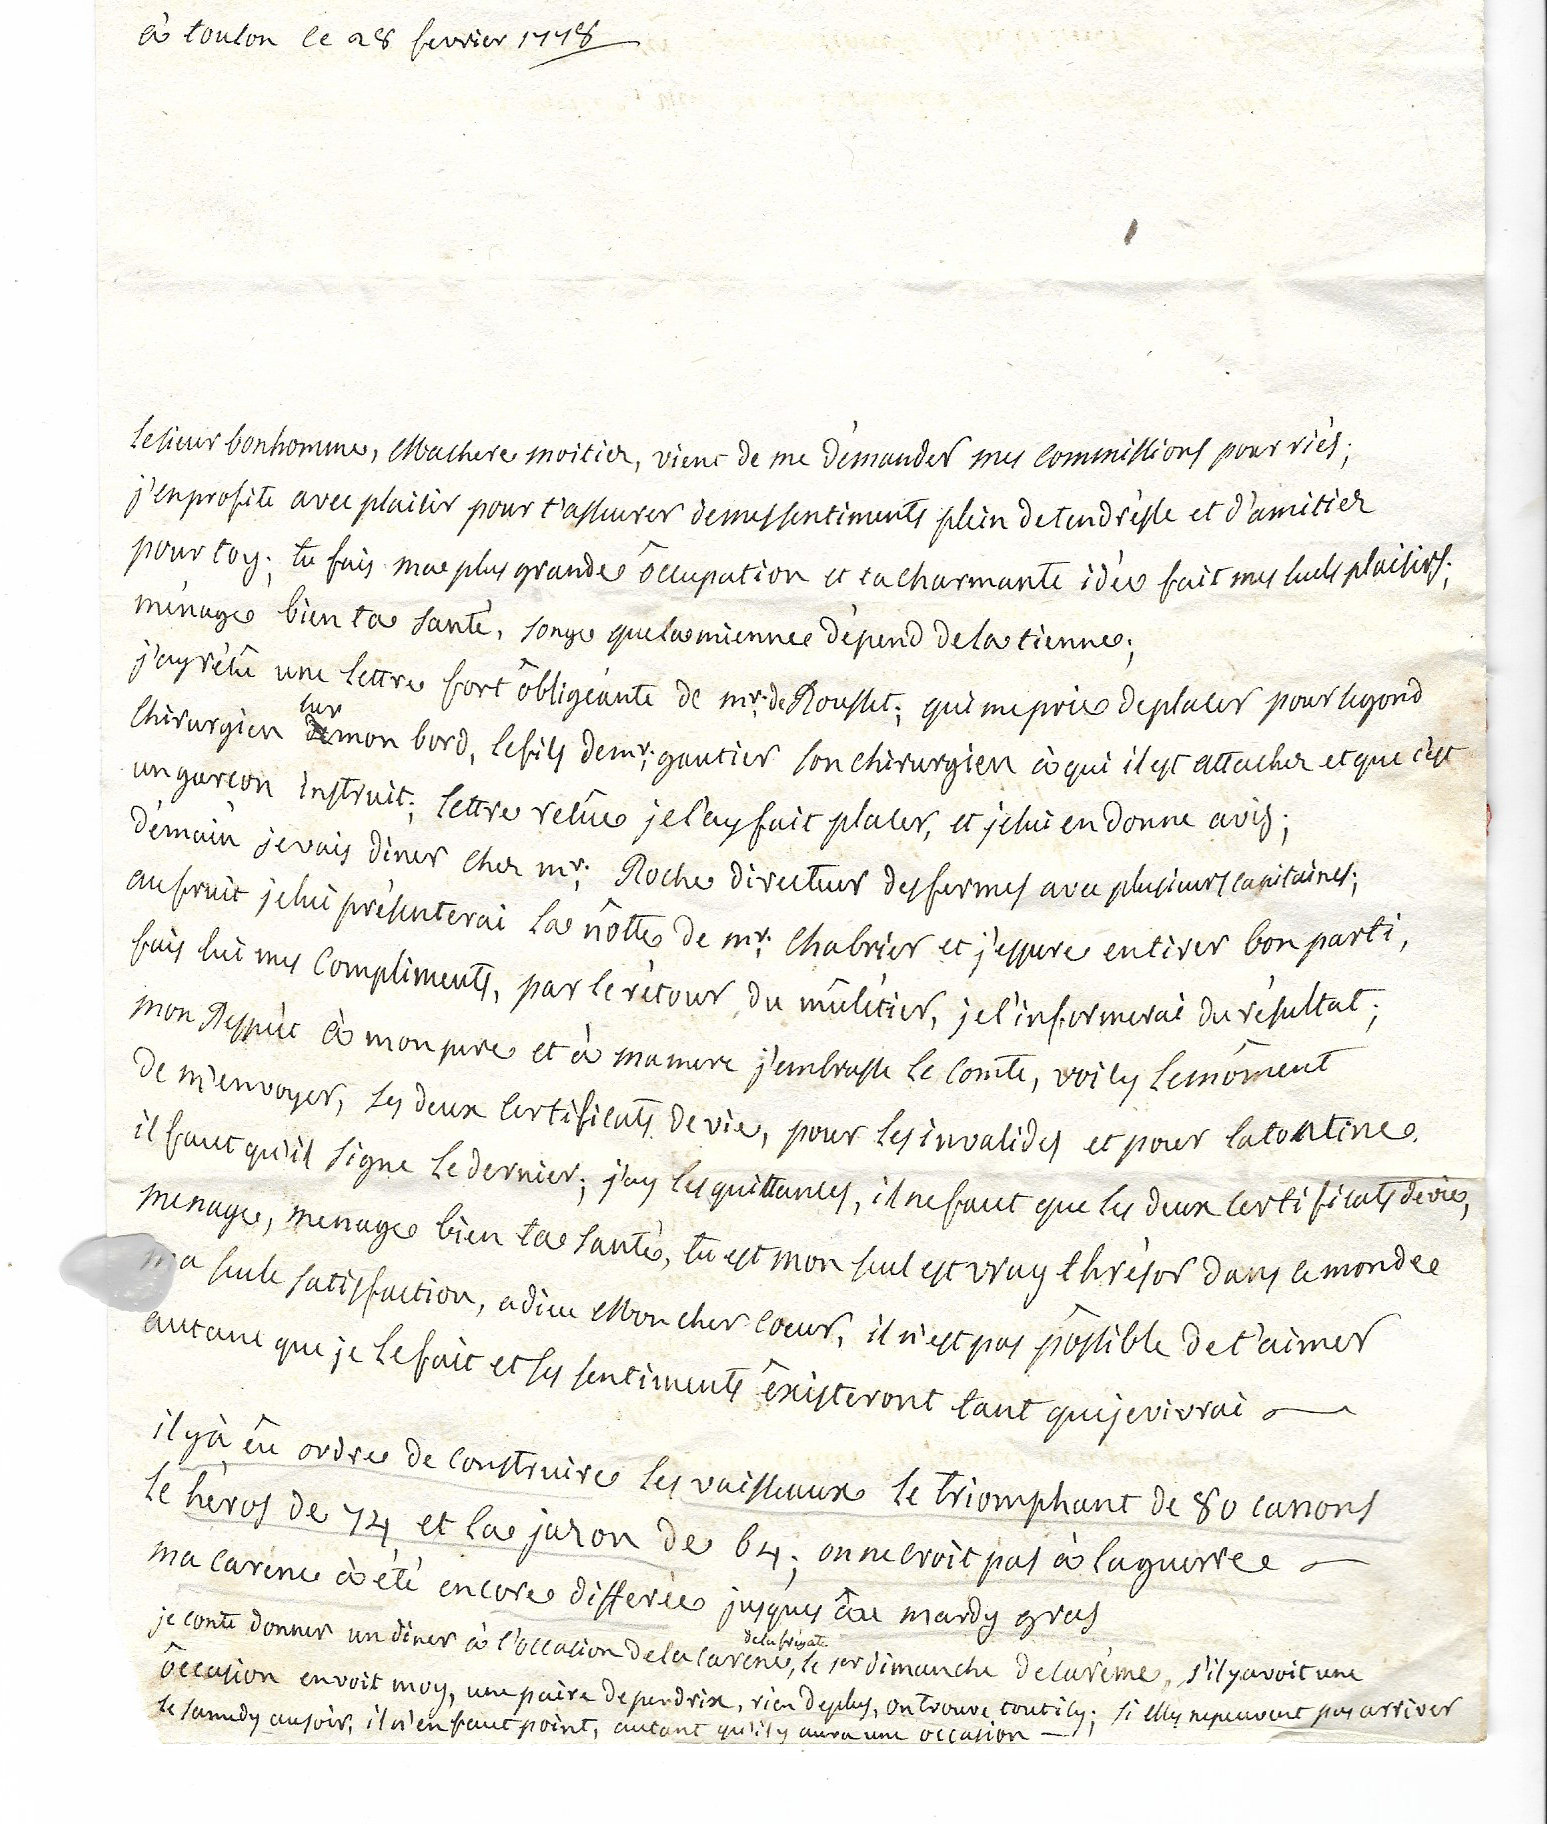 à toulon le 28 fevrier 1778
le sieur bonhomme, Ma chere moitier, vient de me démander mes commissions pour riés;
j'en profite avec plaisir pour t'assurer de mes sentiments plein de tendrèsse et d'amitier
pour toy; tu fais ma plus grande ôccupation et ta charmante idée fait mes seuls plaisirs;
ménage bien ta santé, songe que la mienne dépend de la tienne;
j'ay réçû une lettre fort ôbligéante de mr. de Rousset; qui me prie de placer pour segond
chirurgien sur mon bord, le fils de mr. gautier son chirurgien à qui il est attacher et que c'est
un garcon instruit; lettre reçûe je l'ay fait placer, et je lui en donne avis;
démain je vais diner chez mr. Roche directeur des fermes avec plusieurs capitaines;
au fruit je lui présenterai la nôtte de mr. Chabrier et j'espere en tirer bon parti,
fais lui mes compliments, par le rétour du mûlétier, je l'informerai du résultat;
mon Respèc à mon pere et à ma mere j'embrasse le comte, voicy le môment
de m'envoyer, ses deux certificats de vie, pour les invalides et pour la tontine.
il faut qu'il signe le dernier; j'ay les quittances, il ne faut que les deux certificats de vie,
menage, menage bien ta santé, tu est mon seul est vray thrésor dans ce monde
ma seule satisfaction, adieu Mon cher coeur, il n'est pas pôssible de t'aimer
autant que je le fait et ses sentiments êxisteront tant que je vivrai
il y à êu ordre de construire les vaisseaux le triomphant de 80 canons
le héros de 74 et la jazon de 64; on ne croit pas à la guerre
ma carene à été encore differée jusques âu mardy gras
je conte donner un diner à l'occasion de la carene de la frégate, le 1er dimanche de carème, s'il y avoit une
ôccasion envoit moy, une paire de perdrix, rien de plus, on trouve tout icy; si elles ne peuvent pas arriver
le samedy au soir, il n'en faut point, autant qu'il y aura une occasion